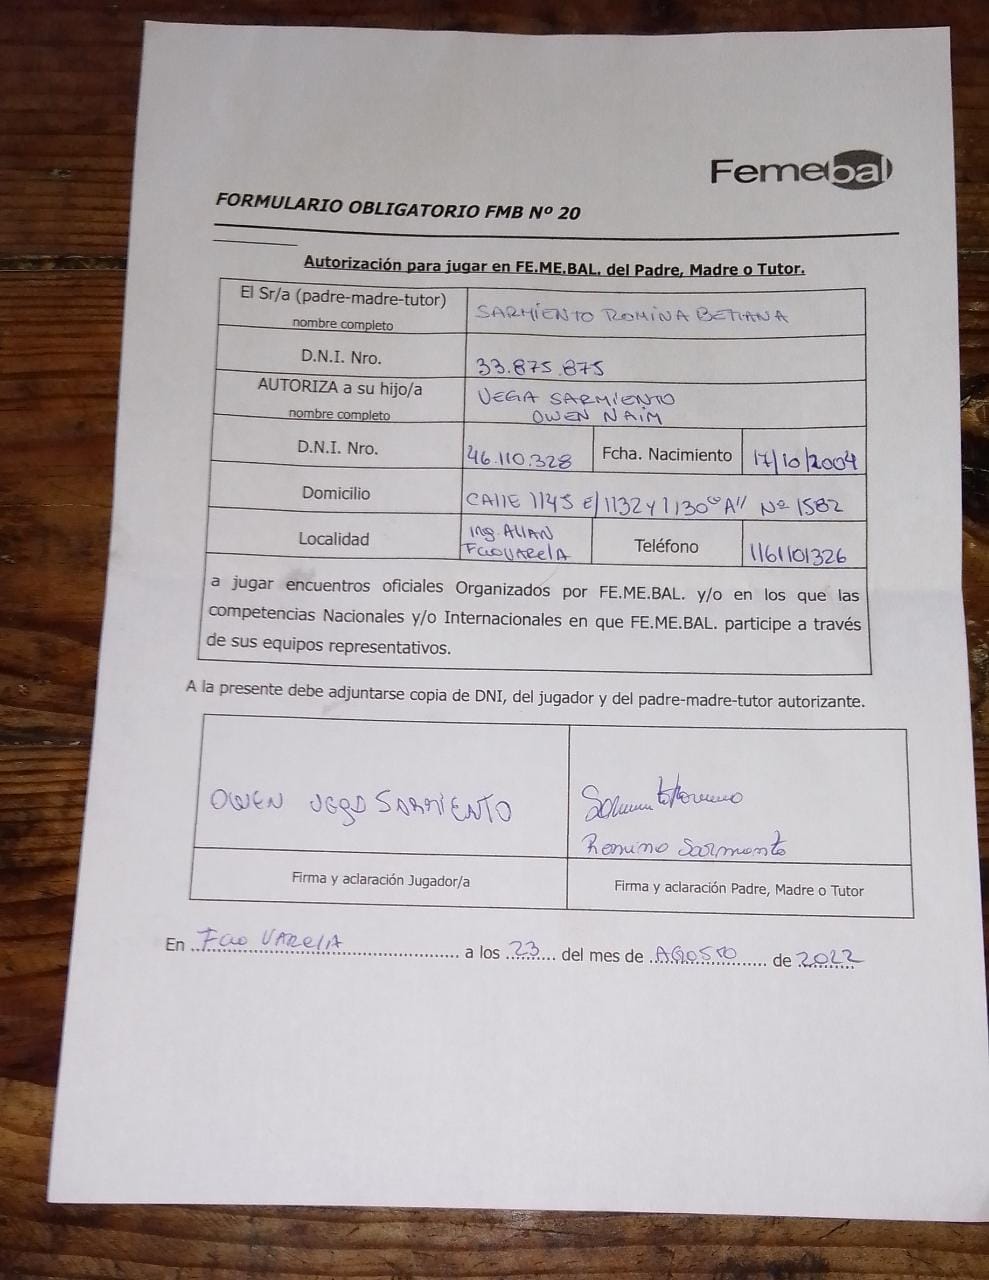 Femebal
FORMULARIO OBLIGATORIO FMB Nº 20
Autorización para jugar en FE.ME.BAL. del Padre, Madre o Tutor.
El Sr/a (padre-madre-tutor)
nombre completo
SARMIENTO ROMINA BETIANA
D.N.I. Nro.
33.875.875
AUTORIZA a su hijo/a
nombre completo
VEGA SARMIENTO
OWEN NAIM
D.N.I. Nro.
46.110.328
Fcha. Nacimiento
17/10/2004
Domicilio
CAllE 1145 E/1132 y 1130 "A" Nº 1582
Localidad
Ing. AllAN
Fcio VARElA
Teléfono
1161101326
a jugar encuentros oficiales Organizados por FE.ME.BAL. y/o en los que las
competencias Nacionales y/o Internacionales en que FE.ME.BAL. participe a través
de sus equipos representativos.
A la presente debe adjuntarse copia de DNI, del jugador y del padre-madre-tutor autorizante.
OWEN VEGA SARMIENTO
Romina Sarmiento
Firma y aclaración Jugador/a
Firma y aclaración Padre, Madre o Tutor
En Fcio VARElA a los 23 del mes de AGOSTO de 2022